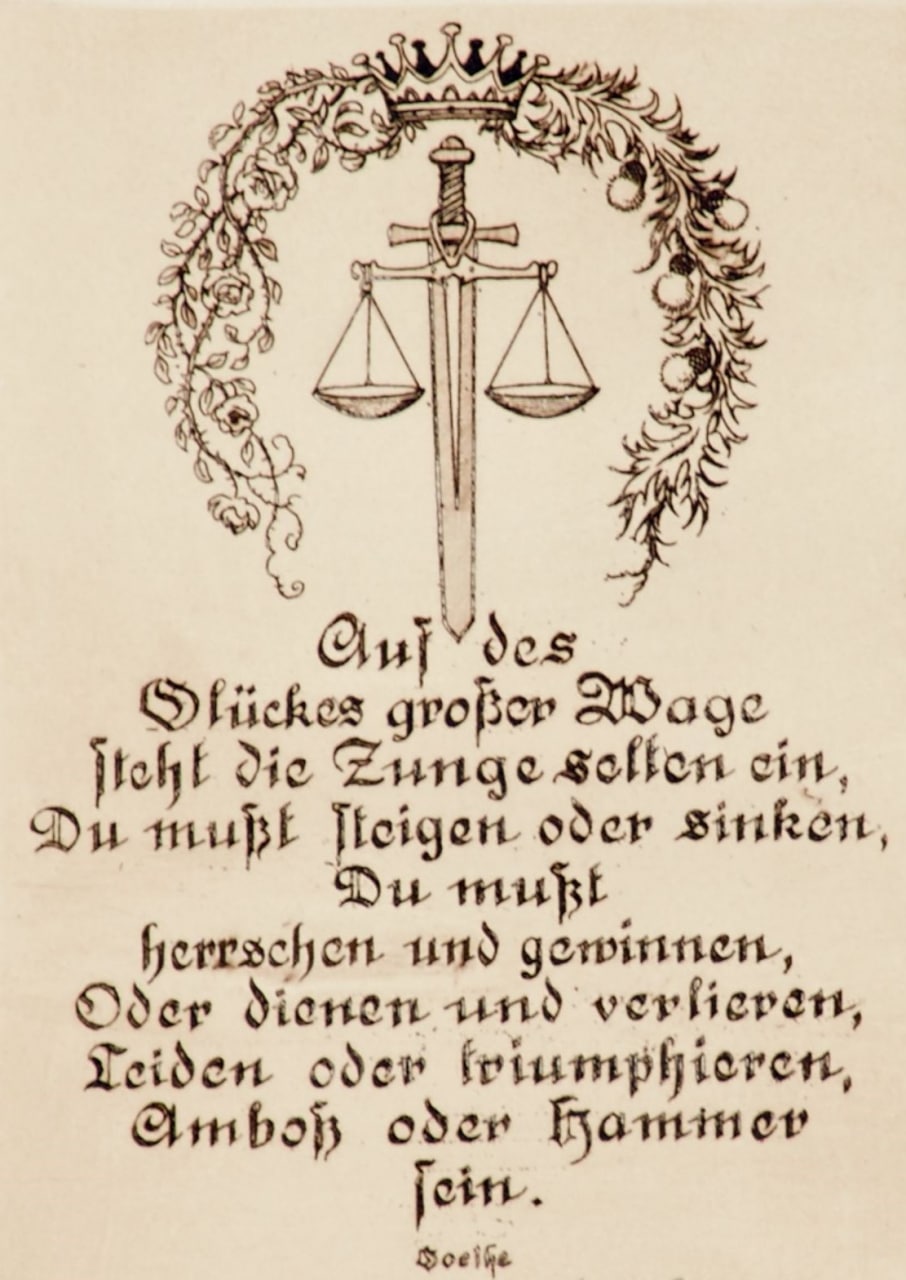 Auf des
Glückes großer Wage
steht die Zunge selten ein,
Du mußt steigen oder sinken,
Du mußt
herrschen und gewinnen,
Oder dienen und verlieren,
Leiden oder triumphieren,
Amboß oder Hammer
sein.
Goethe